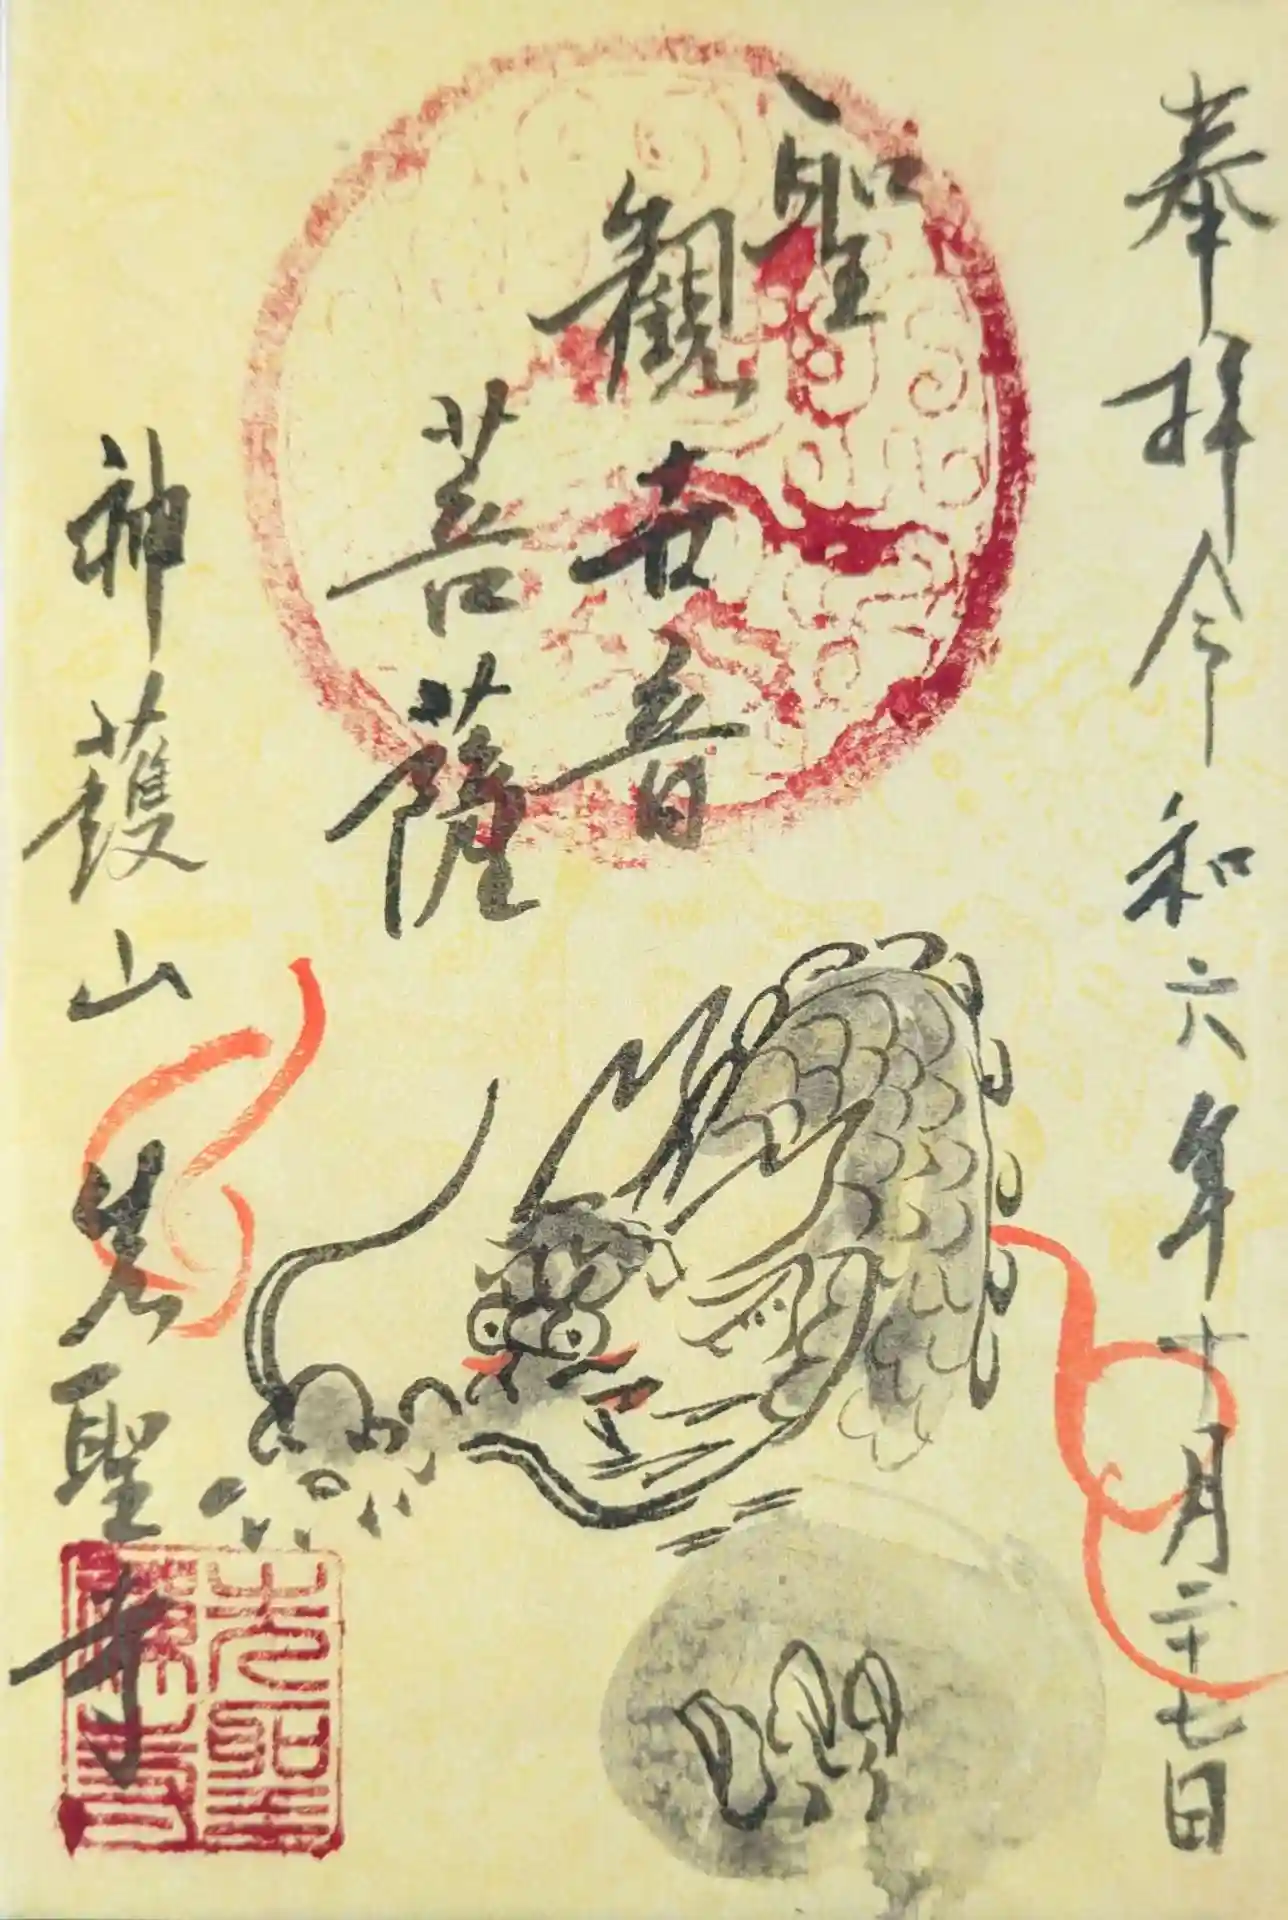 奉拝令和六年十月二十七日
聖
観世音
菩薩
神護山先聖寺
先聖禅寺